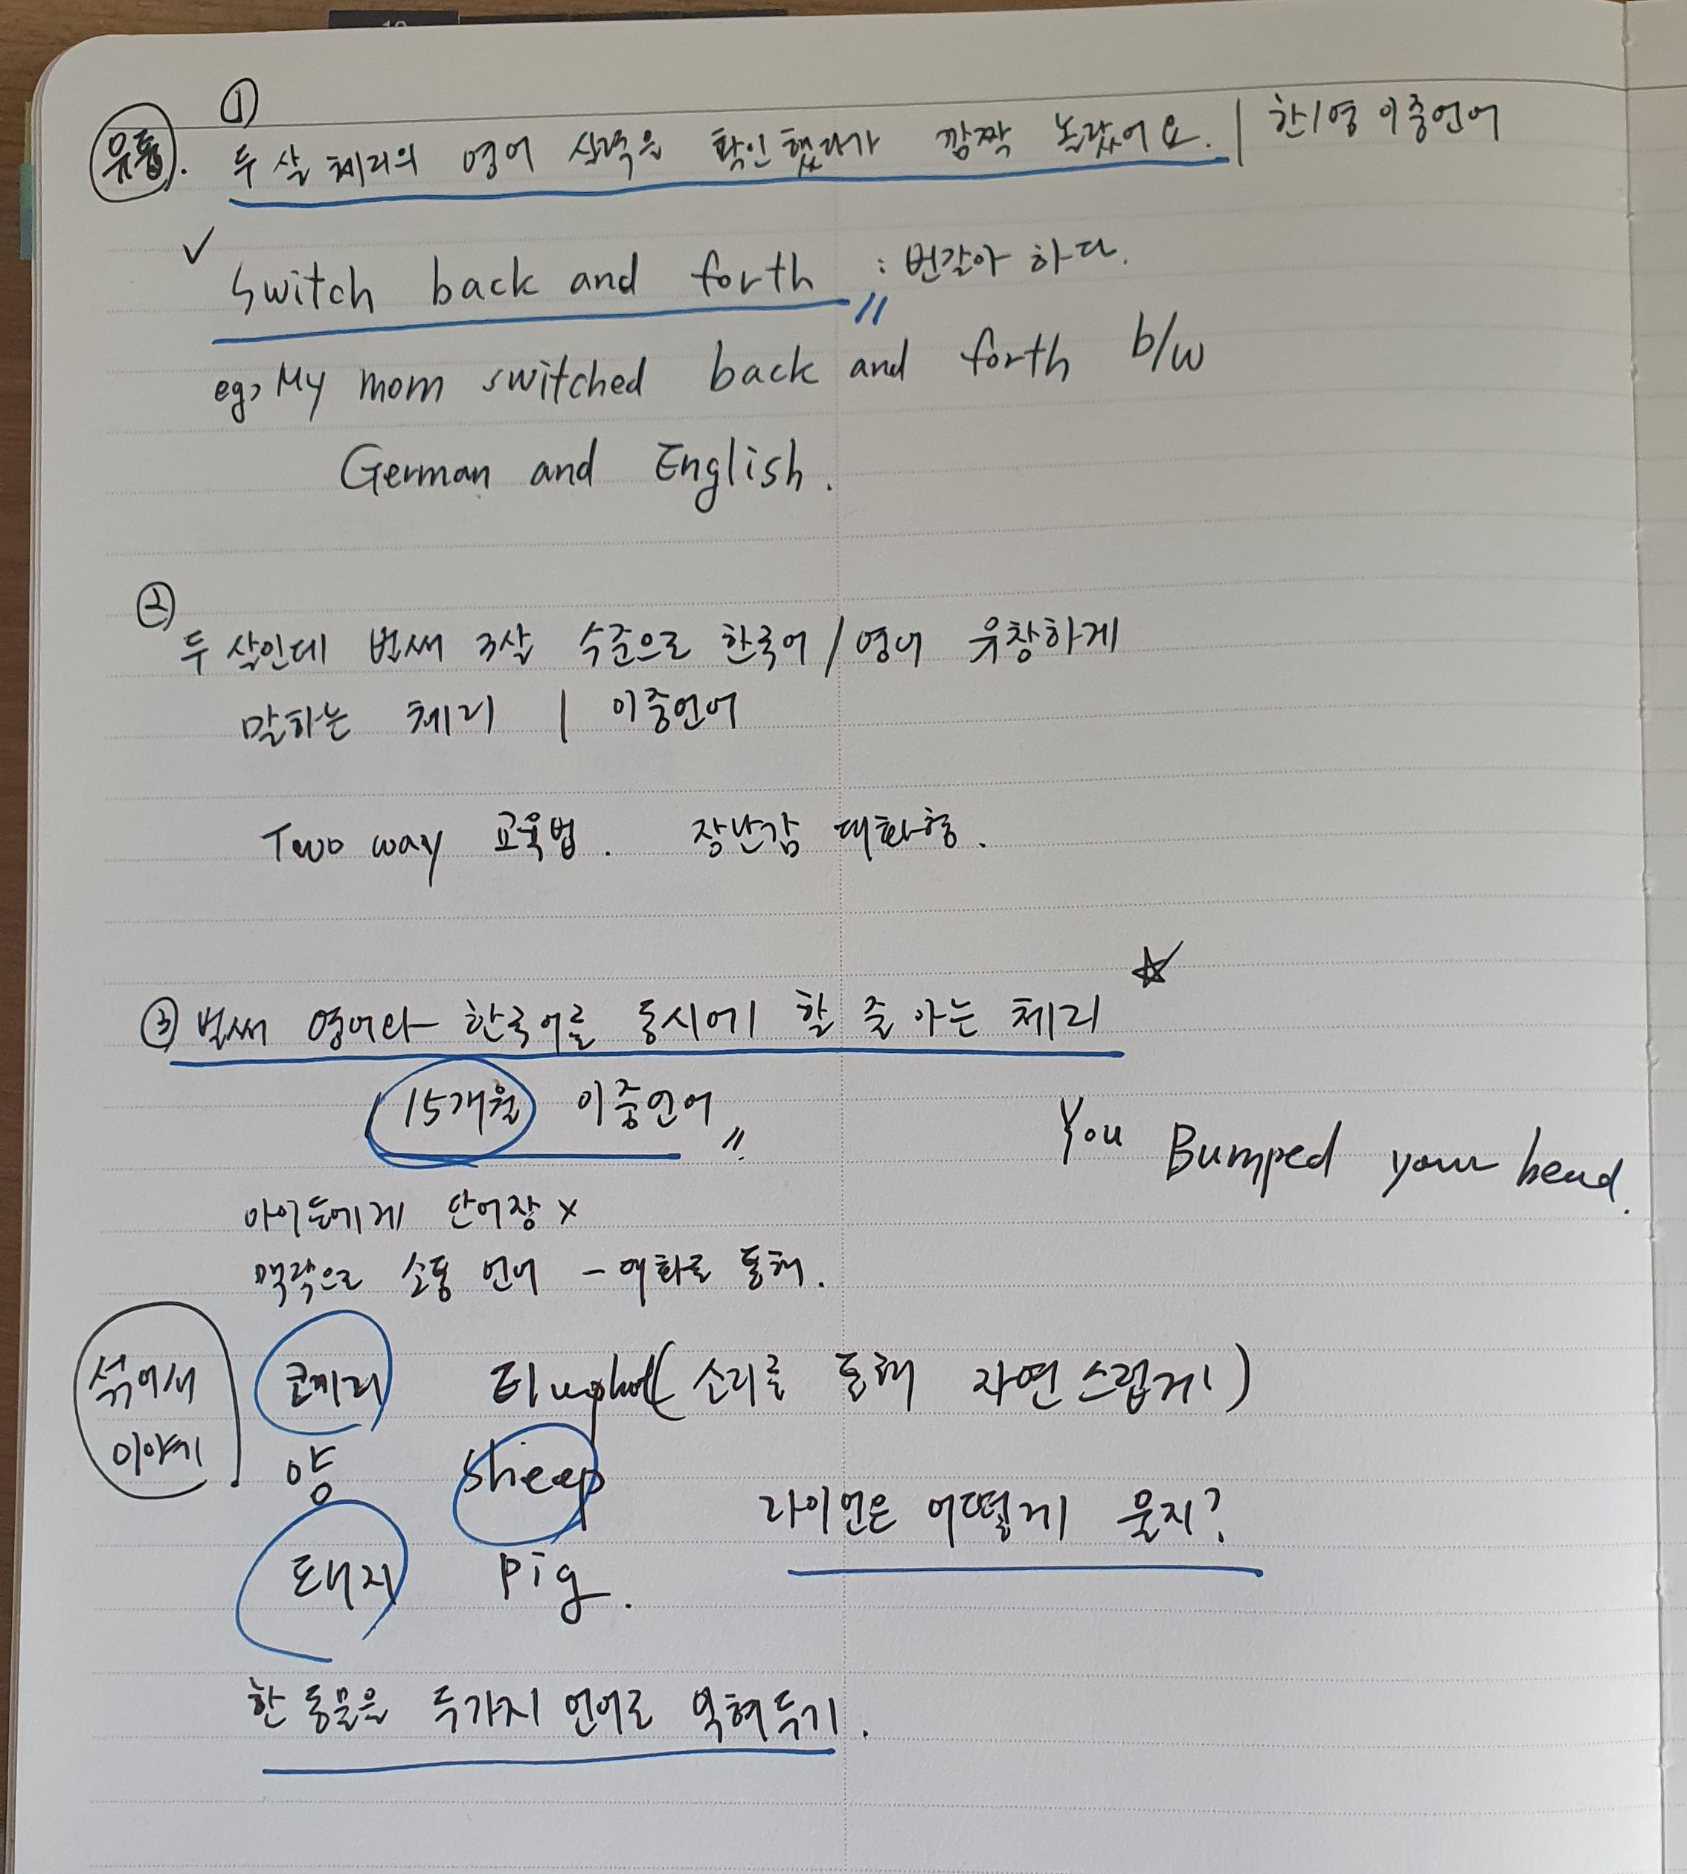 ①
유튭. 두 살 체리의 영어 실력을 확인했다가 깜짝 놀랐어요. | 한/영 이중언어
✓ Switch back and forth : 번갈아 하다.
eg> My mom switched back and forth b/w
German and English.
②
두 살인데 벌써 3살 수준으로 한국어 / 영어 유창하게
말하는 체리 | 이중언어
Two way 교육법. 장난감 대화형.
③ 벌써 영어와 한국어를 동시에 할 줄 아는 체리 ☆
15개월 이중언어
You Bumped your head.
아이들에게 단어장 x
맥락으로 소통 언어 - 대화로 통해.
섞어서
이야기
코끼리 (소리를 통해 자연스럽게)
양 sheep
라이언은 어떻게 울지?
돼지 pig.
한 동물을 두가지 언어로 익혀두기.